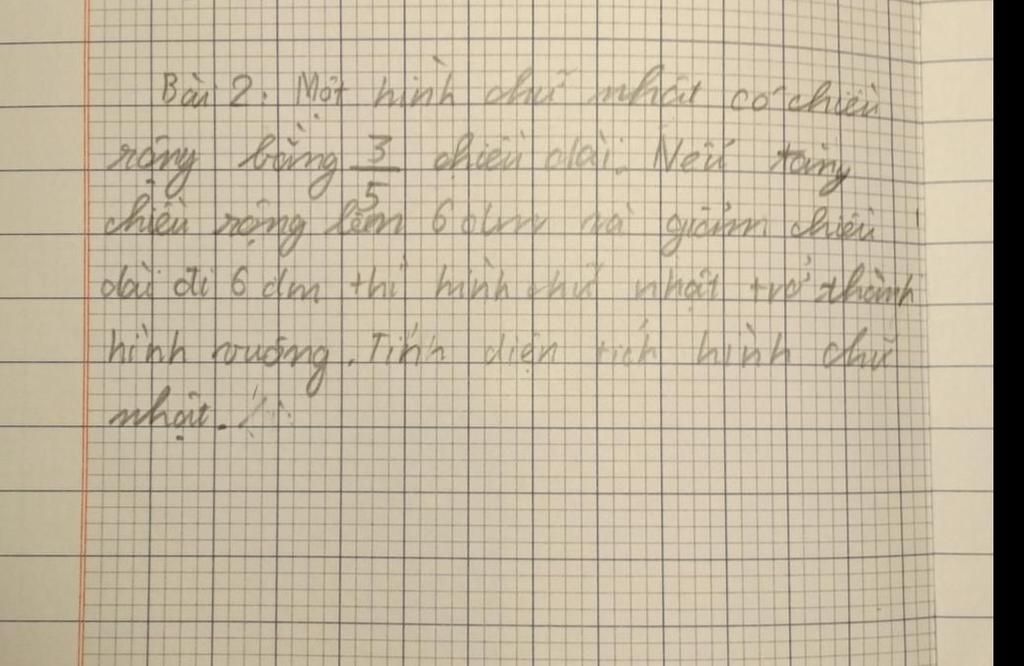 Bài 2: Một hình chữ nhật có chiều
rộng bằng 3/5 chiều dài. Nếu tăng
chiều rộng lêm 6 dm và giảm chiều
dài đi 6 dm thì hình chữ nhật trở thành
hình vuông. Tính diện tích hình chữ
nhật.